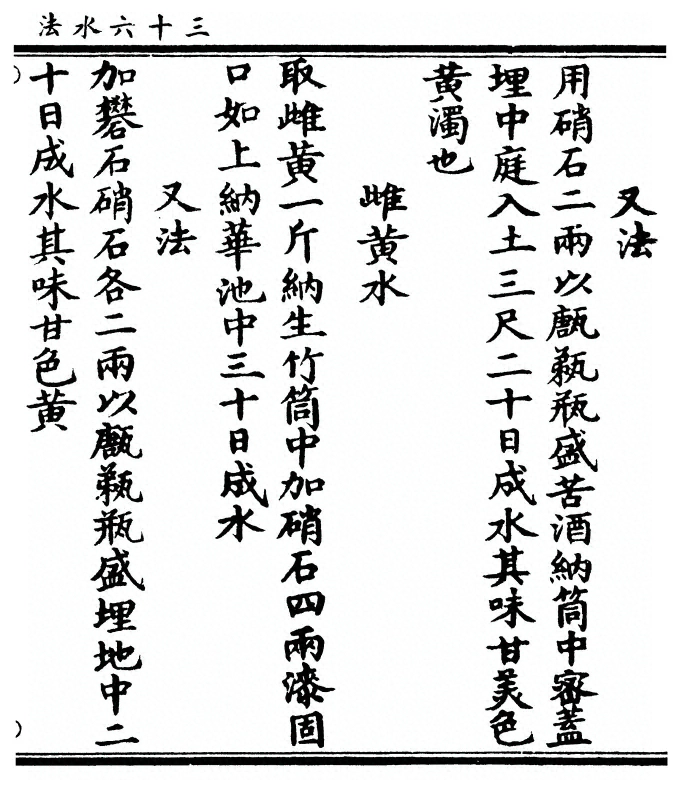 三十六水法
又法
用硝石二兩以瓶盛苦酒納筒中密蓋
埋中庭入土三尺二十日成水其味甘美色
黄濁也
雌黄水
取雌黄一斤納生竹筒中加硝石四兩漆固
口如上納華池中三十日成水
又法
加礬石硝石各二兩以瓶盛埋地中二
十日成水其味甘色黄